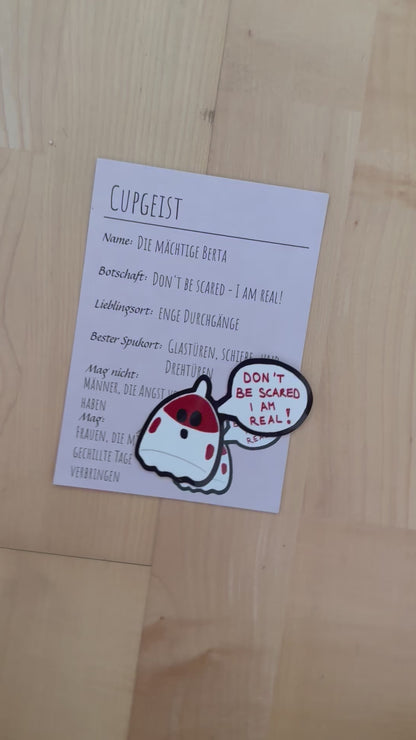 Cupgeist
Name: Die mächtige Berta
Botschaft: Don't be scared - I am real!
Lieblingsort: enge Durchgänge
Bester Spukort: Glastüren, schiebe- und
Drehtüren
Mag nicht:
Männer, die Angst
haben
Mag:
Frauen, die
gechillte Tage
verbringen
DON'T
BE SCARED
I AM
REAL!
REAL